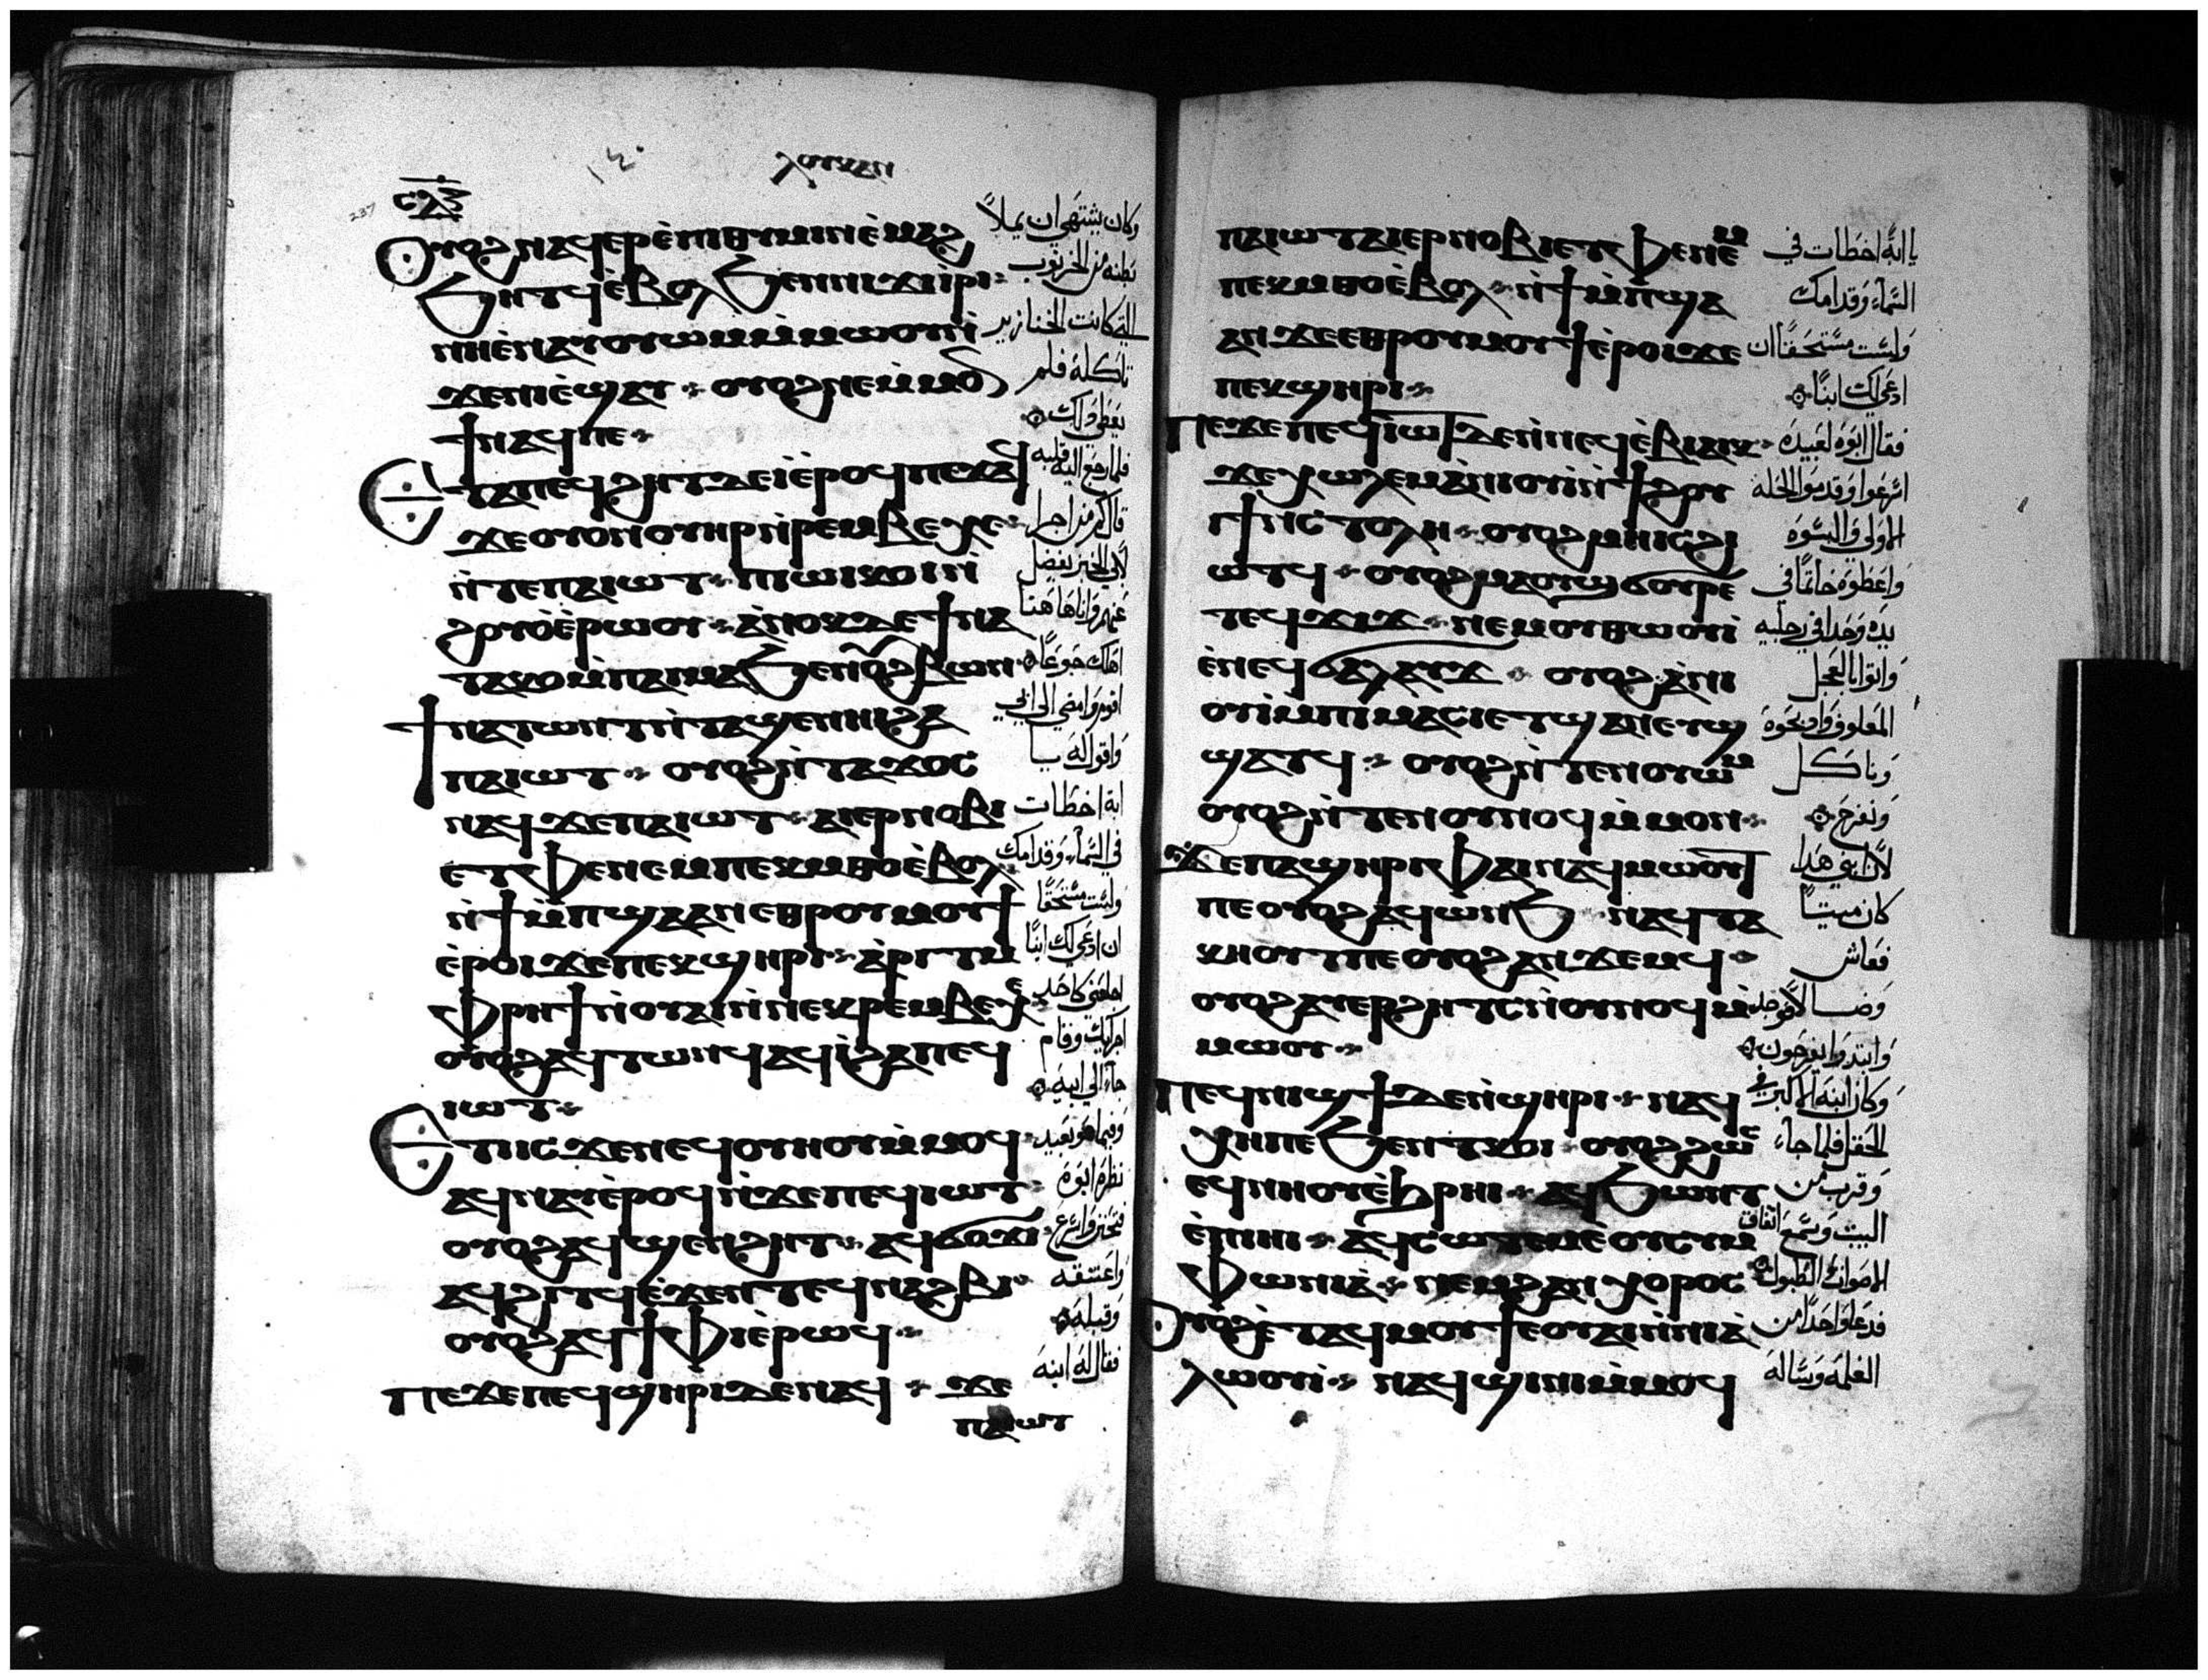 ⲗⲟⲩⲕⲁⲛ
١٤٠
ⲥⲗⲍ
237
ⲟⲩⲟϩ ⲛⲁϥⲉⲣⲉ̀ⲡⲓⲑⲩⲙⲓⲛ ⲉ̀ⲙⲁϩ
ϧⲏⲧϥ ⲉ̀ⲃⲟⲗ ϧⲉⲛ ⲛⲓϫⲓⲣⲓ
ⲛⲏ ⲉ̀ⲛⲁⲩⲟⲩⲱⲙ ⲙ̀ⲙⲱⲟⲩ ⲛ̀
ϫⲉ ⲛⲓⲉ̀ϣⲁⲩ ⲟⲩⲟϩ ⲛⲉⲙ̀ⲙⲟⲛ
ϯ ⲛⲁϥ ⲡⲉ
ⲉⲧⲁ ⲡⲉϥϩⲏⲧ ⲇⲉ ⲓ̀ ⲉ̀ⲣⲟϥ ⲡⲉϫⲁϥ
ϫⲉ ⲟⲩⲟⲛ ⲟⲩⲏⲣ ⲛ̀ⲣⲉⲙⲃⲉⲭⲉ
ⲛ̀ⲧⲉ ⲡⲁⲓⲱⲧ ⲡⲓⲱⲓⲕ ⲟⲓ ⲛ̀
ϩⲟⲩⲟ̀ ⲉ̀ⲣⲱⲟⲩ ⲁ̀ⲛⲟⲕ ⲇⲉ ϯⲛⲁ
ⲧⲁⲕⲟ ⲙ̀ⲡⲁⲓⲙⲁ ϧⲉⲛ ⲟⲩϩⲃⲱⲛ
ϯⲛⲁⲧⲱⲛⲧ ⲛ̀ⲧⲁϣⲉⲛⲏⲓ ϩⲁ
ⲡⲁⲓⲱⲧ ⲟⲩⲟϩ ⲛ̀ⲧⲁϫⲟⲥ
ⲛⲁϥ ϫⲉ ⲡⲁⲓⲱⲧ ⲁⲓⲉⲣⲛⲟⲃⲓ
ⲉⲧⲫⲉ ⲛⲉⲙ ⲡⲉⲕⲙ̀ⲑⲟ ⲉ̀ⲃⲟⲗ
ⲛ̀ϯⲙ̀ⲡϣⲁ ⲁⲛ ⲉⲑⲣⲟⲩⲙⲟⲩϯ
ⲉ̀ⲣⲟⲓ ϫⲉ ⲡⲉⲕϣⲏⲣⲓ ⲁ̀ⲣⲓⲧ ⲙ̀
ⲫⲣⲏϯ ⲛ̀ⲟⲩⲁⲓ ⲛ̀ⲛⲉⲕⲣⲉⲙⲃⲉⲭⲉ
ⲟⲩⲟϩ ⲁϥⲧⲱⲛϥ ⲁϥⲓ̀ ϩⲁ ⲡⲉϥ
ⲓⲱⲧ
ⲉⲧⲓⲥϫⲉⲛ ⲉϥⲟⲩⲏⲟⲩ ⲙ̀ⲙⲟϥ
ⲁϥⲛⲁⲩ ⲉ̀ⲣⲟϥ ⲛ̀ϫⲉ ⲡⲉϥⲓⲱⲧ
ⲟⲩⲟϩ ⲁϥϣⲉⲛϩⲏⲧ ⲁϥϭⲟϫⲓ
ⲁϥϩⲓⲧϥ ⲉ̀ϫⲉⲛ ⲧⲉϥⲛⲁϩⲃⲓ
ⲟⲩⲟϩ ⲁϥϯⲫⲓ ⲉ̀ⲣⲱϥ
ⲡⲉϫⲉ ⲡⲉϥϣⲏⲣⲓ ⲇⲉ ⲛⲁϥ ϫⲉ
ⲡⲁⲓⲱⲧ
وكان يشتهي ان يملأ
بطنه من الخرنوب
التي كانت الخنازير
تاكله فلم
يعطي ذلك
فلما رجع اليه قلبه
قال كم من اجرا
لأبي الخبز يفضل
عنهم وانا هاهنا
اهلك جوعًا
اقوم وامضي الى ابي
واقول له يا
ابة اخطات
في السماء وقدامك
ولست مستحقًا
ان ادعي لك ابنًا
اجعلني كاحد
اجرايك وقام
جاء الي ابيه
وفيما هو بعيد
نظره ابوه
فتحنن واسرع
واعتنقه
وقبله
فقال له ابنه
ⲡⲁⲓⲱⲧ ⲁⲓⲉⲣⲛⲟⲃⲓ ⲉⲧⲫⲉ ⲛⲉⲙ
ⲡⲉⲕⲙⲑⲟ ⲉ̀ⲃⲟⲗ ⲛ̀ϯⲙ̀ⲡϣⲁ
ⲁⲛ ϫⲉ ⲉⲑⲣⲟⲩⲙⲟⲩϯ ⲉ̀ⲣⲟⲓ ϫⲉ
ⲡⲉⲕϣⲏⲣⲓ
ⲡⲉϫⲉ ⲡⲉϥⲓⲱⲧ ⲇⲉ ⲛ̀ⲛⲉϥⲉ̀ⲃⲓⲁⲓⲕ
ϫⲉ ⲭⲱⲗⲉⲙ ⲁ̀ⲛⲓⲟⲩⲓ ⲛ̀ϯϩⲟⲩ
ⲓϯ ⲛⲥⲧⲟⲗⲏ ⲟⲩⲟϩ ⲙⲏⲓⲥ ϩⲓ
ⲱⲧϥ ⲟⲩⲟϩ ⲙⲁ ⲟⲩϣϭⲟⲩⲣ ⲉ̀
ⲧⲉϥϫⲓϫ ⲛⲉⲙ ⲟⲩⲑⲱⲟⲩⲓ
ⲉ̀ⲛⲉϥϭⲁⲗⲁⲩϫ ⲟⲩⲟϩ ⲁ̀ⲛⲓ
ⲟⲩⲓ ⲙⲡⲓⲙⲁⲥⲓ ⲉⲧϣⲁⲛⲉⲩϣ
ϣⲁⲧϥ ⲟⲩⲟϩ ⲛ̀ⲧⲉⲛⲟⲩⲱⲙ
ⲟⲩⲟϩ ⲛ̀ⲧⲉⲛⲟⲩⲛⲟϥ ⲙ̀ⲙⲟⲛ
ϫⲉ ⲡⲁϣⲏⲣⲓ ⲫⲁⲓ ⲛⲁϥⲙⲱⲟⲩⲧ
ⲡⲉ ⲟⲩⲟϩ ⲁϥⲱⲛϧ ⲛⲁϥⲧⲁ
ⲕⲏⲟⲩⲧ ⲡⲉ ⲟⲩⲟϩ ⲁⲛϫⲉⲙϥ
ⲟⲩⲟϩ ⲁⲩⲉⲣϩⲏⲧⲥ ⲛ̀ⲟⲩⲛⲟϥ ⲙ̀
ⲙⲱⲟⲩ
ⲡⲉϥⲛⲓϣϯ ⲇⲉ ⲛ̀ϣⲏⲣⲓ ⲛⲁϥ
ⲭⲏ ⲡⲉ ϧⲉⲛ ⲧⲕⲟⲓ ⲟⲩⲟϩ ϩⲱⲥ
ⲉϥⲛⲏⲟⲩ ⲉ̀ϩⲣⲏⲓ ⲁϥϧⲱⲛⲧ
ⲉ̀ⲡⲓⲏⲓ ⲁϥⲥⲱⲧⲉⲙ ⲉ̀ⲟⲩⲥⲩⲙ
ⲫⲱⲛⲓⲁ̀ ⲛⲉⲙ ϩⲁⲛⲭⲟⲣⲟⲥ
ⲟⲩⲟϩ ⲉ̀ⲧⲁϥⲙⲟⲩϯ ⲉⲟⲩⲁⲓ ⲛ̀ⲛⲓⲁ̀
ⲗⲱⲟⲩⲓ̀ ⲛⲁϥϣⲓⲛⲓ ⲙ̀ⲙⲟϥ
يا ابة اخطات في
السماء وقدامك
ولست مستحقًا ان
ادعي لك ابنًا
فقال ابوه لعبيده
اسرعوا وقدموا الحلة
الاولى والبسوه
واعطوه خاتمًا في
يده وحذا في رجليه
واتوا بالعجل
المعلوف واذبحوه
وناكل
ونفرح
لأن ابني هذا
كان ميتًا
فعاش
وضالا فوجد
وابتدوا يفرحون
وكان ابنه الاكبر في
الحقل فلما جاء
وقرب من
البيت وسمع اتفاق
الاصوات والطبول
فدعا واحدًا من
الغلمه وساله